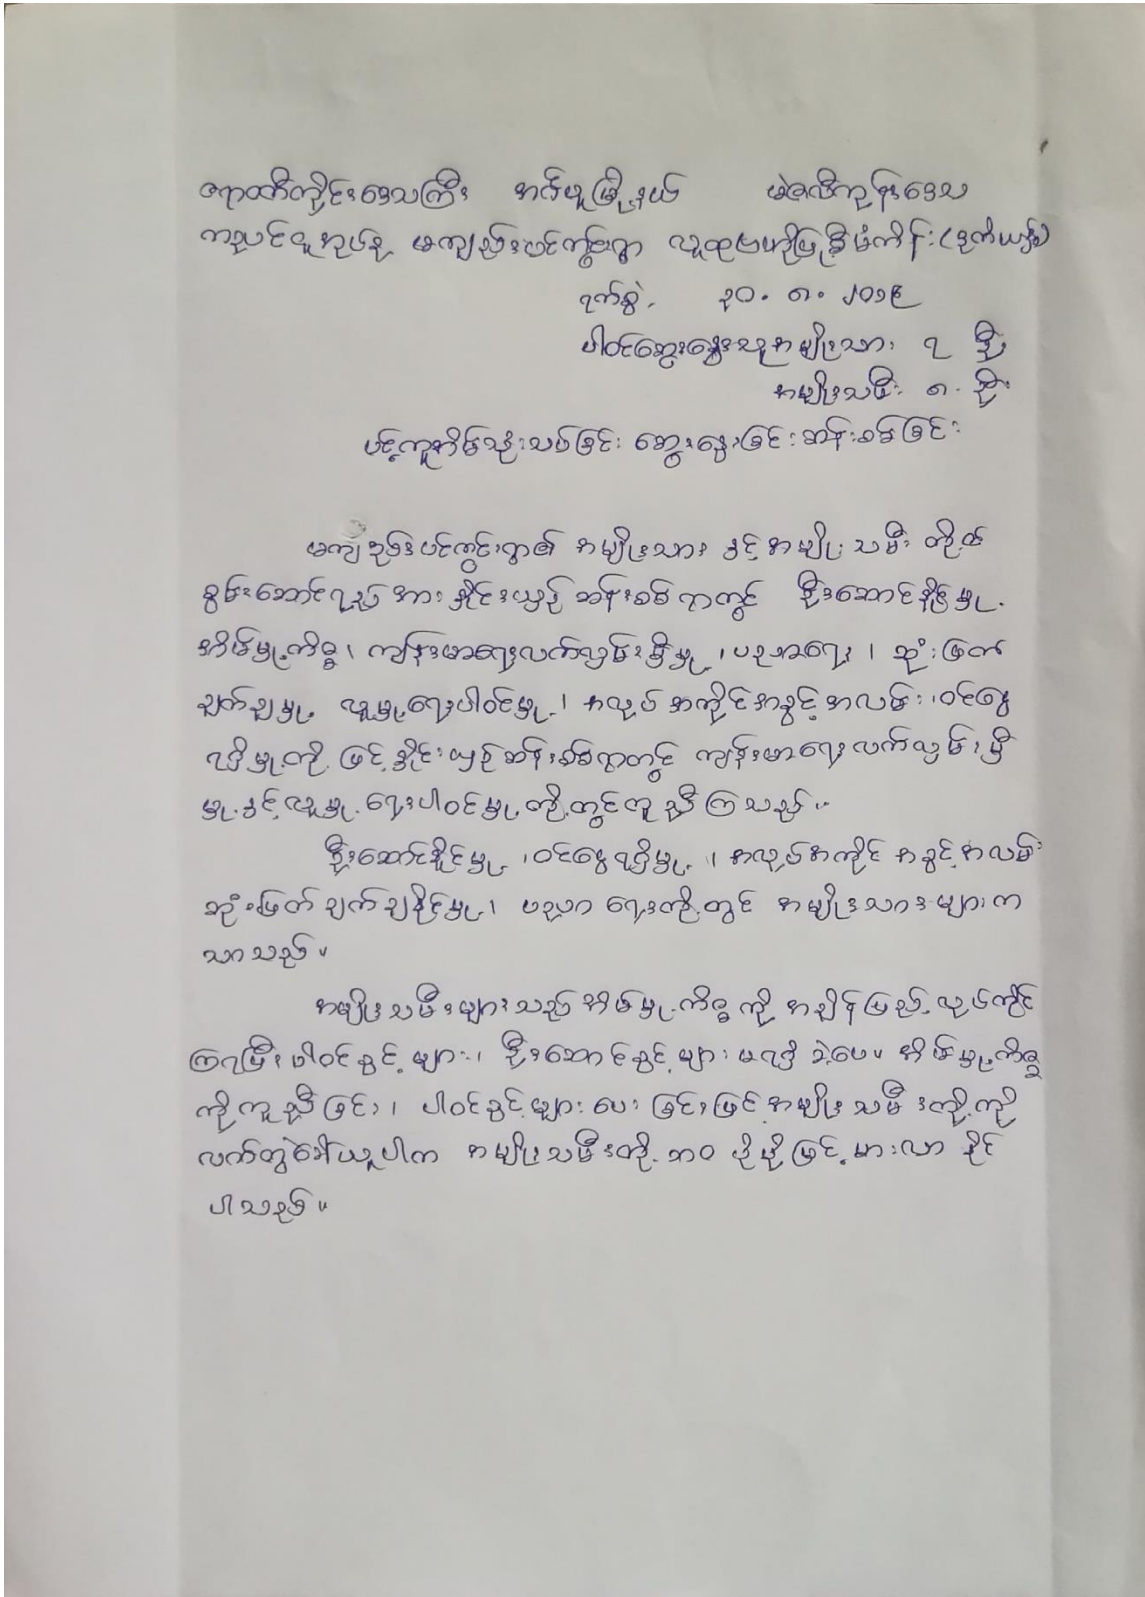 ဧရာဝတီတိုင်းဒေသကြီး အင်္ဂပူမြို့နယ် မဲဇလီကုန်းဒေသ
ကညင်ငူအုပ်စု မကျည်းပင်ကွင်းရွာ လူထုဗဟိုပြုစီမံကိန်း
ရက်စွဲ၊ ၃၀.၈.၂၀၁၉
ပါဝင်ဆွေးနွေးသူအမျိုးသား ၇ ဦး
အမျိုးသမီး ၈ ဦး
ပင့်ကူအိမ်သုံးသပ်ခြင်း ဆွေးနွေးခြင်း ဆန်းစစ်ခြင်း
မကျည်းပင်ကွင်းရွာ၏ အမျိုးသား နှင့် အမျိုးသမီး တို့၏
စွမ်းဆောင်ရည်အား နှိုင်းယှဉ် ဆန်းစစ်ရာတွင် ဦးဆောင်နိုင်မှု၊
အိမ်မှုကိစ္စ၊ ကျန်းမာရေးလက်လှမ်းမှီမှု၊ ပညာရေး၊ ဆုံးဖြတ်
ချက်ချမှု၊ လူမှုရေးပါဝင်မှု၊ အလုပ်အကိုင်အခွင့်အလမ်း၊ ဝင်ငွေ
ရရှိမှုတို့ ဖြင့် နှိုင်းယှဉ်ဆန်းစစ်ရာတွင် ကျန်းမာရေးလက်လှမ်းမှီ
မှုနှင့် လူမှုရေးပါဝင်မှုတို့တွင်တူညီကြသည်။
ဦးဆောင်နိုင်မှု၊ ဝင်ငွေရရှိမှု၊ အလုပ်အကိုင်အခွင့်အလမ်း
ဆုံးဖြတ်ချက်ချနိုင်မှု၊ ပညာရေးတို့တွင် အမျိုးသားများက
သာသည်။
အမျိုးသမီးများသည် အိမ်မှုကိစ္စကို အချိန်ပြည့်လုပ်ကိုင်
ကြရပြီး ပါဝင်ခွင့်များ၊ ဦးဆောင်ခွင့်များ မရရှိခဲ့ပေ။ အိမ်မှုကိစ္စ
ကိုကူညီခြင်း၊ ပါဝင်ခွင့်များပေးခြင်းဖြင့် အမျိုးသမီးတို့ကို
လက်တွဲခေါ်ယူပါက အမျိုးသမီးတို့ဘဝ ပိုမိုမြင့်မားလာနိုင်
ပါသည်။